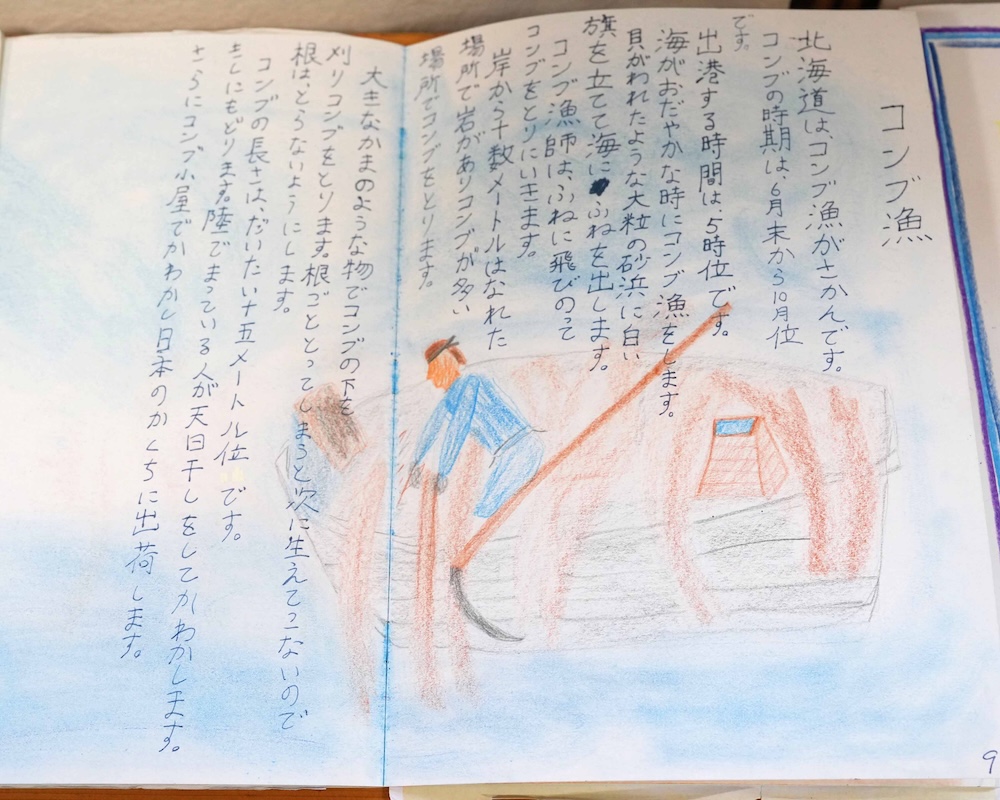 コンブ漁
北海道は、コンブ漁がさかんです。
コンブの時期は、6月末から10月位
です。
出港する時間は、5時位です。
海がおだやかな時にコンブ漁をします。
貝がわれたような大粒の砂浜に白い
旗を立てて海にふねを出します。
コンブ漁師は、ふねに飛びのって
コンブをとりにいきます。
岸から十数メートルはなれた
場所で岩がありコンブが多い
場所でコンブをとります。
大きなかまのような物でコンブの下を
刈りコンブをとります。根ごととってしまうと次に生えてこないので
根は、とらないようにします。
コンブの長さは、だいたい十五メートル位です。
きしにもどります。陸でまっている人が天日干しをしてかわかします。
さらにコンブ小屋でかわかし日本のかくちに出荷します。
9